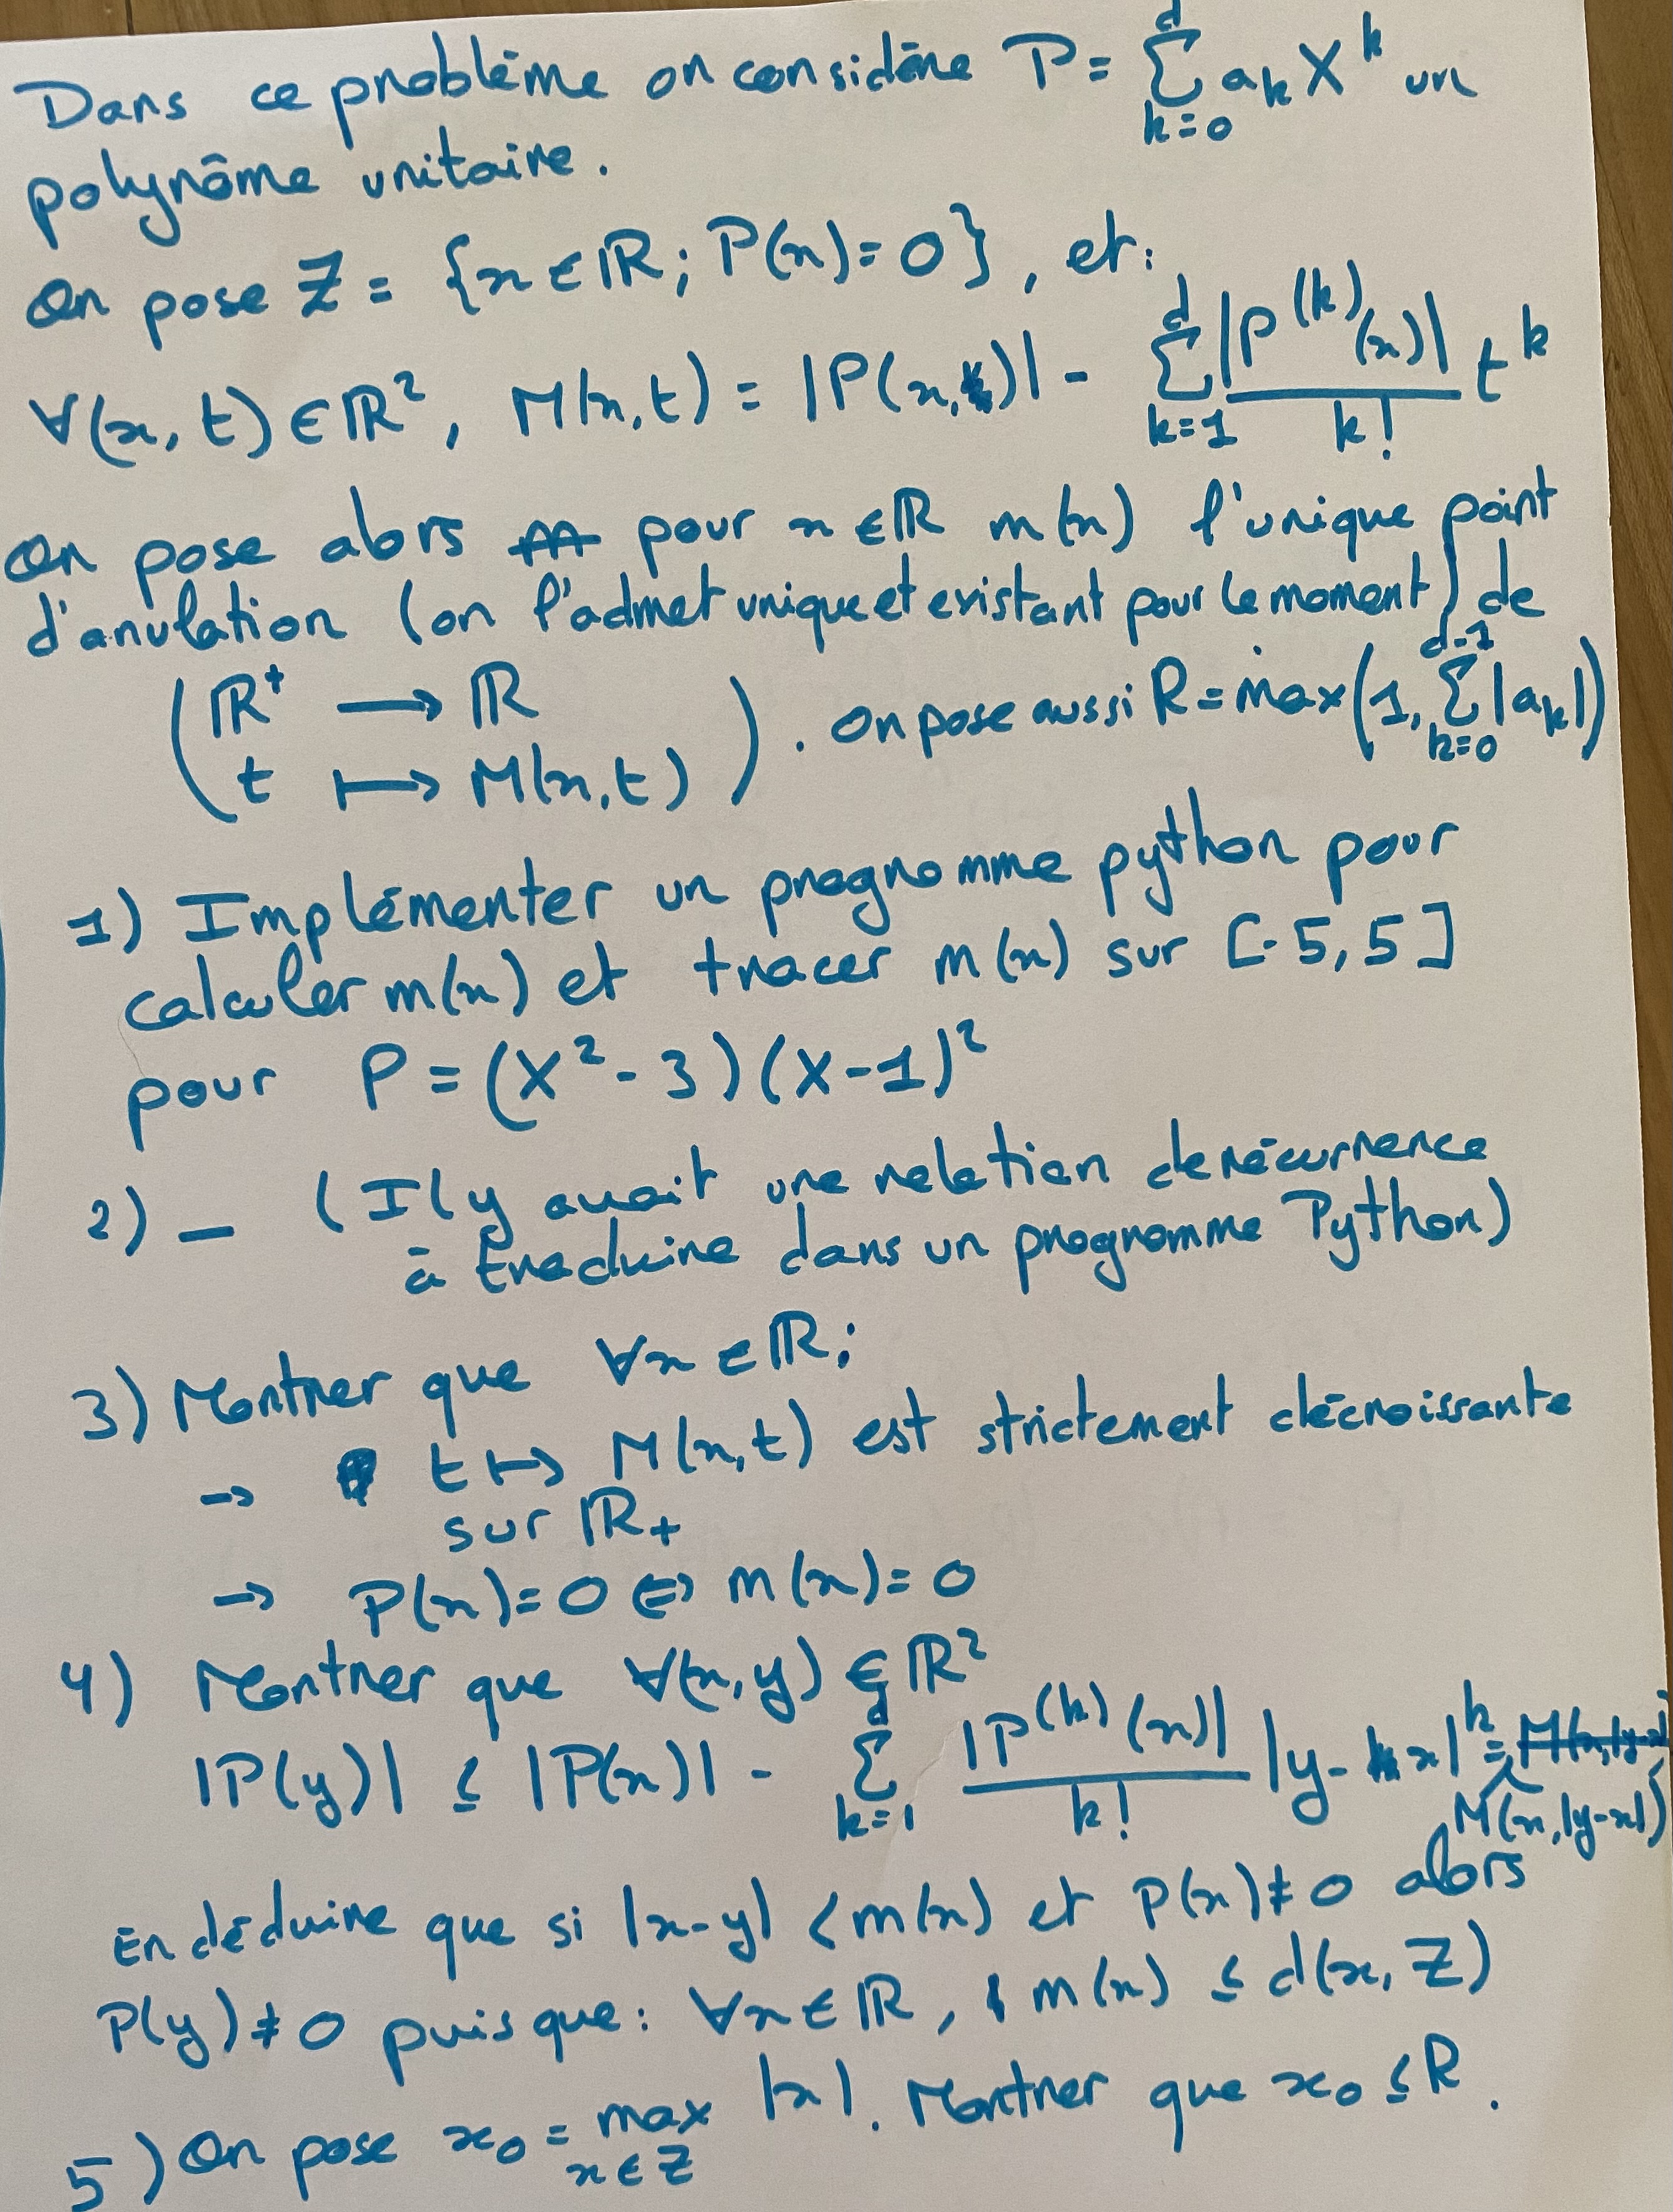 Dans ce problème on considère P = \sum_{k=0}^{d} a_k X^k un
polynôme unitaire.
On pose Z = {x ∈ ℝ ; P(x) = 0}, et :
∀(x, t) ∈ ℝ², M(x, t) = |P(x, t)| - \sum_{k=1}^{d} \frac{|P^{(k)}(x)|}{k!} t^k
On pose alors pour x ∈ ℝ m(x) l'unique point
d'anulation (on l'admet unique et existant pour le moment) de
(ℝ⁺ ⟶ ℝ
t ⟼ M(x, t)). On pose aussi R = max(1, \sum_{k=0}^{d-1} |a_k|)
1) Implémenter un programme python pour
calculer m(x) et tracer m(x) sur [-5, 5]
pour P = (X² - 3)(X - 1)²
2) — (Il y avait une relation de récurrence
à traduire dans un programme Python)
3) Montrer que ∀x ∈ ℝ ;
→ t ↦ M(x, t) est strictement décroissante
sur ℝ₊
→ P(x) = 0 ⇔ m(x) = 0
4) Montrer que ∀(x, y) ∈ ℝ²
|P(y)| ≤ |P(x)| - \sum_{k=1}^{d} \frac{|P^{(k)}(x)|}{k!} |y - x|^k = M(x, |y-x|)
En déduire que si |x - y| < m(x) et P(x) ≠ 0 alors
P(y) ≠ 0 puis que : ∀x ∈ ℝ, m(x) ≤ d(x, Z)
5) On pose x₀ = max_{x ∈ Z} |x|. Montrer que x₀ ≤ R.